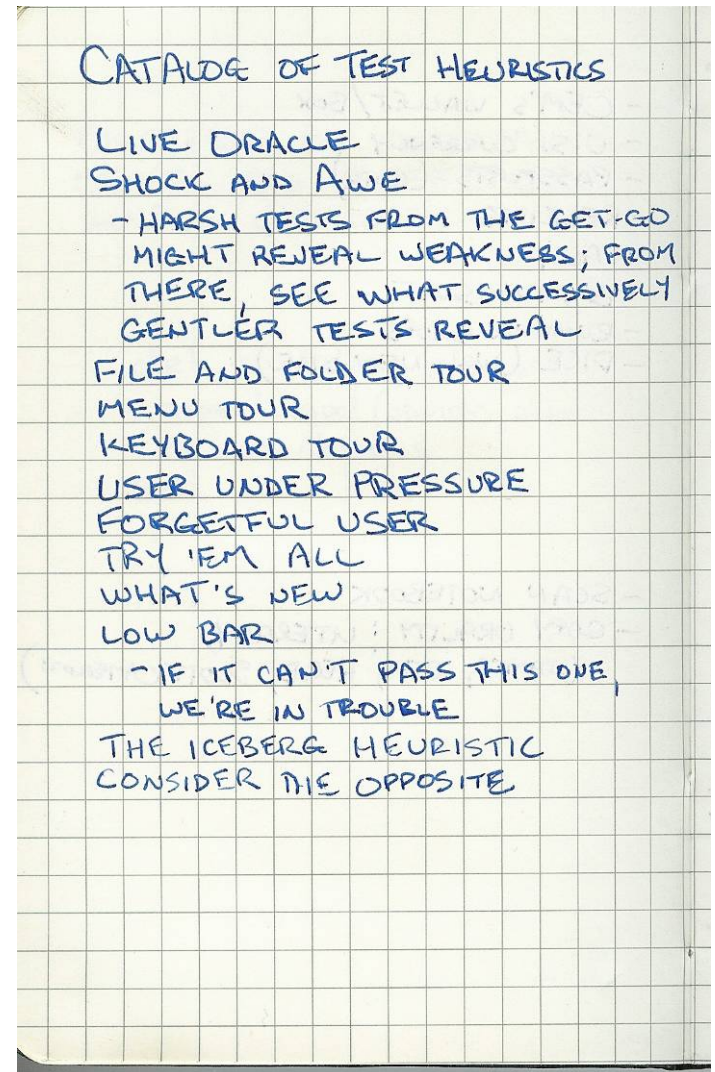 CATALOG OF TEST HEURISTICS
LIVE ORACLE
SHOCK AND AWE
- HARSH TESTS FROM THE GET-GO
MIGHT REVEAL WEAKNESS; FROM
THERE, SEE WHAT SUCCESSIVELY
GENTLER TESTS REVEAL
FILE AND FOLDER TOUR
MENU TOUR
KEYBOARD TOUR
USER UNDER PRESSURE
FORGETFUL USER
TRY 'EM ALL
WHAT'S NEW
LOW BAR
- IF IT CAN'T PASS THIS ONE,
WE'RE IN TROUBLE
THE ICEBERG HEURISTIC
CONSIDER THE OPPOSITE